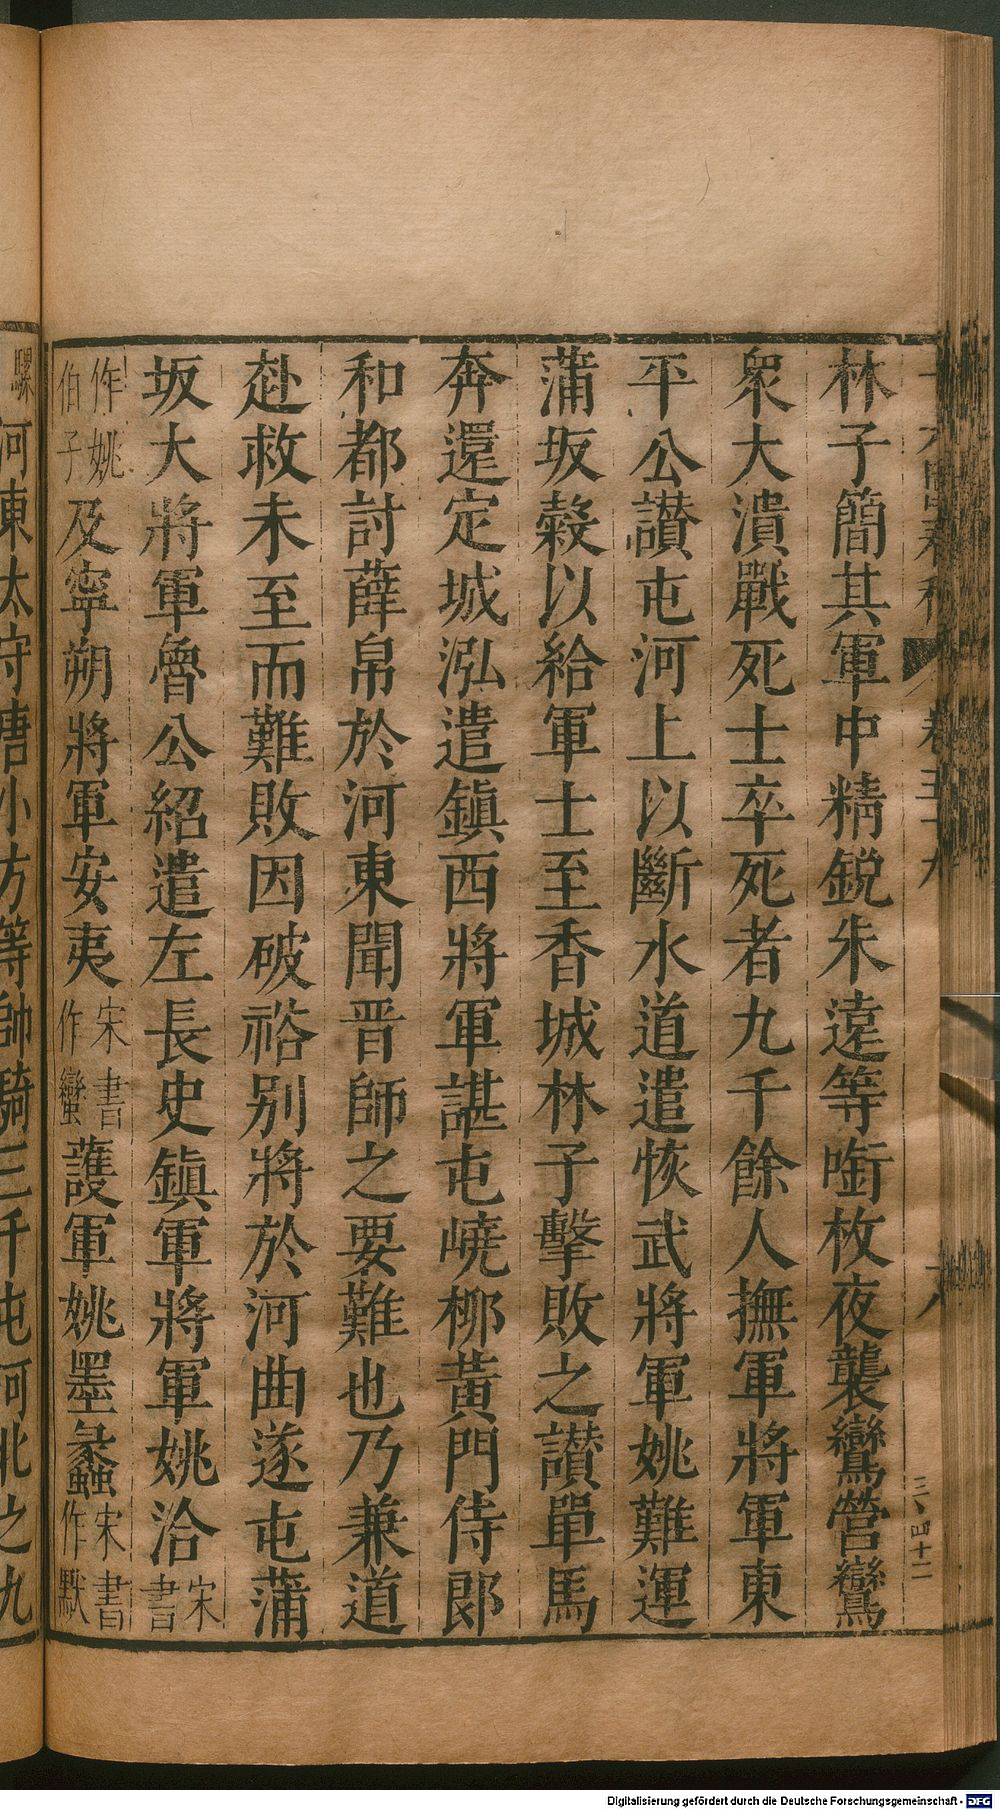 林子簡其軍中精銳朱遠等啣枚夜襲鸞營鸞
衆大潰戰死士卒死者九千餘人撫軍將軍東
平公讃屯河上以斷水道遣恢武將軍姚難運
蒲坂榖以給軍士至香城林子擊敗之讃單馬
奔還定城泓遣鎭西將軍諶屯嶢柳黃門侍郞
和都討薛帛於河東聞晋師之要難也乃兼道
赴救未至而難敗因破裕别將於河曲遂屯蒲
坂大將軍魯公紹遣左長史鎭軍將軍姚洽宋書
作姚伯子及寧朔將軍安夷宋書作蠻護軍姚墨蠡宋書作默
騾河東太守唐小方等帥騎三千屯河北之九
卷五十九
三、四十二
Digitalisierung gefördert durch die Deutsche Forschungsgemeinschaft - DFG